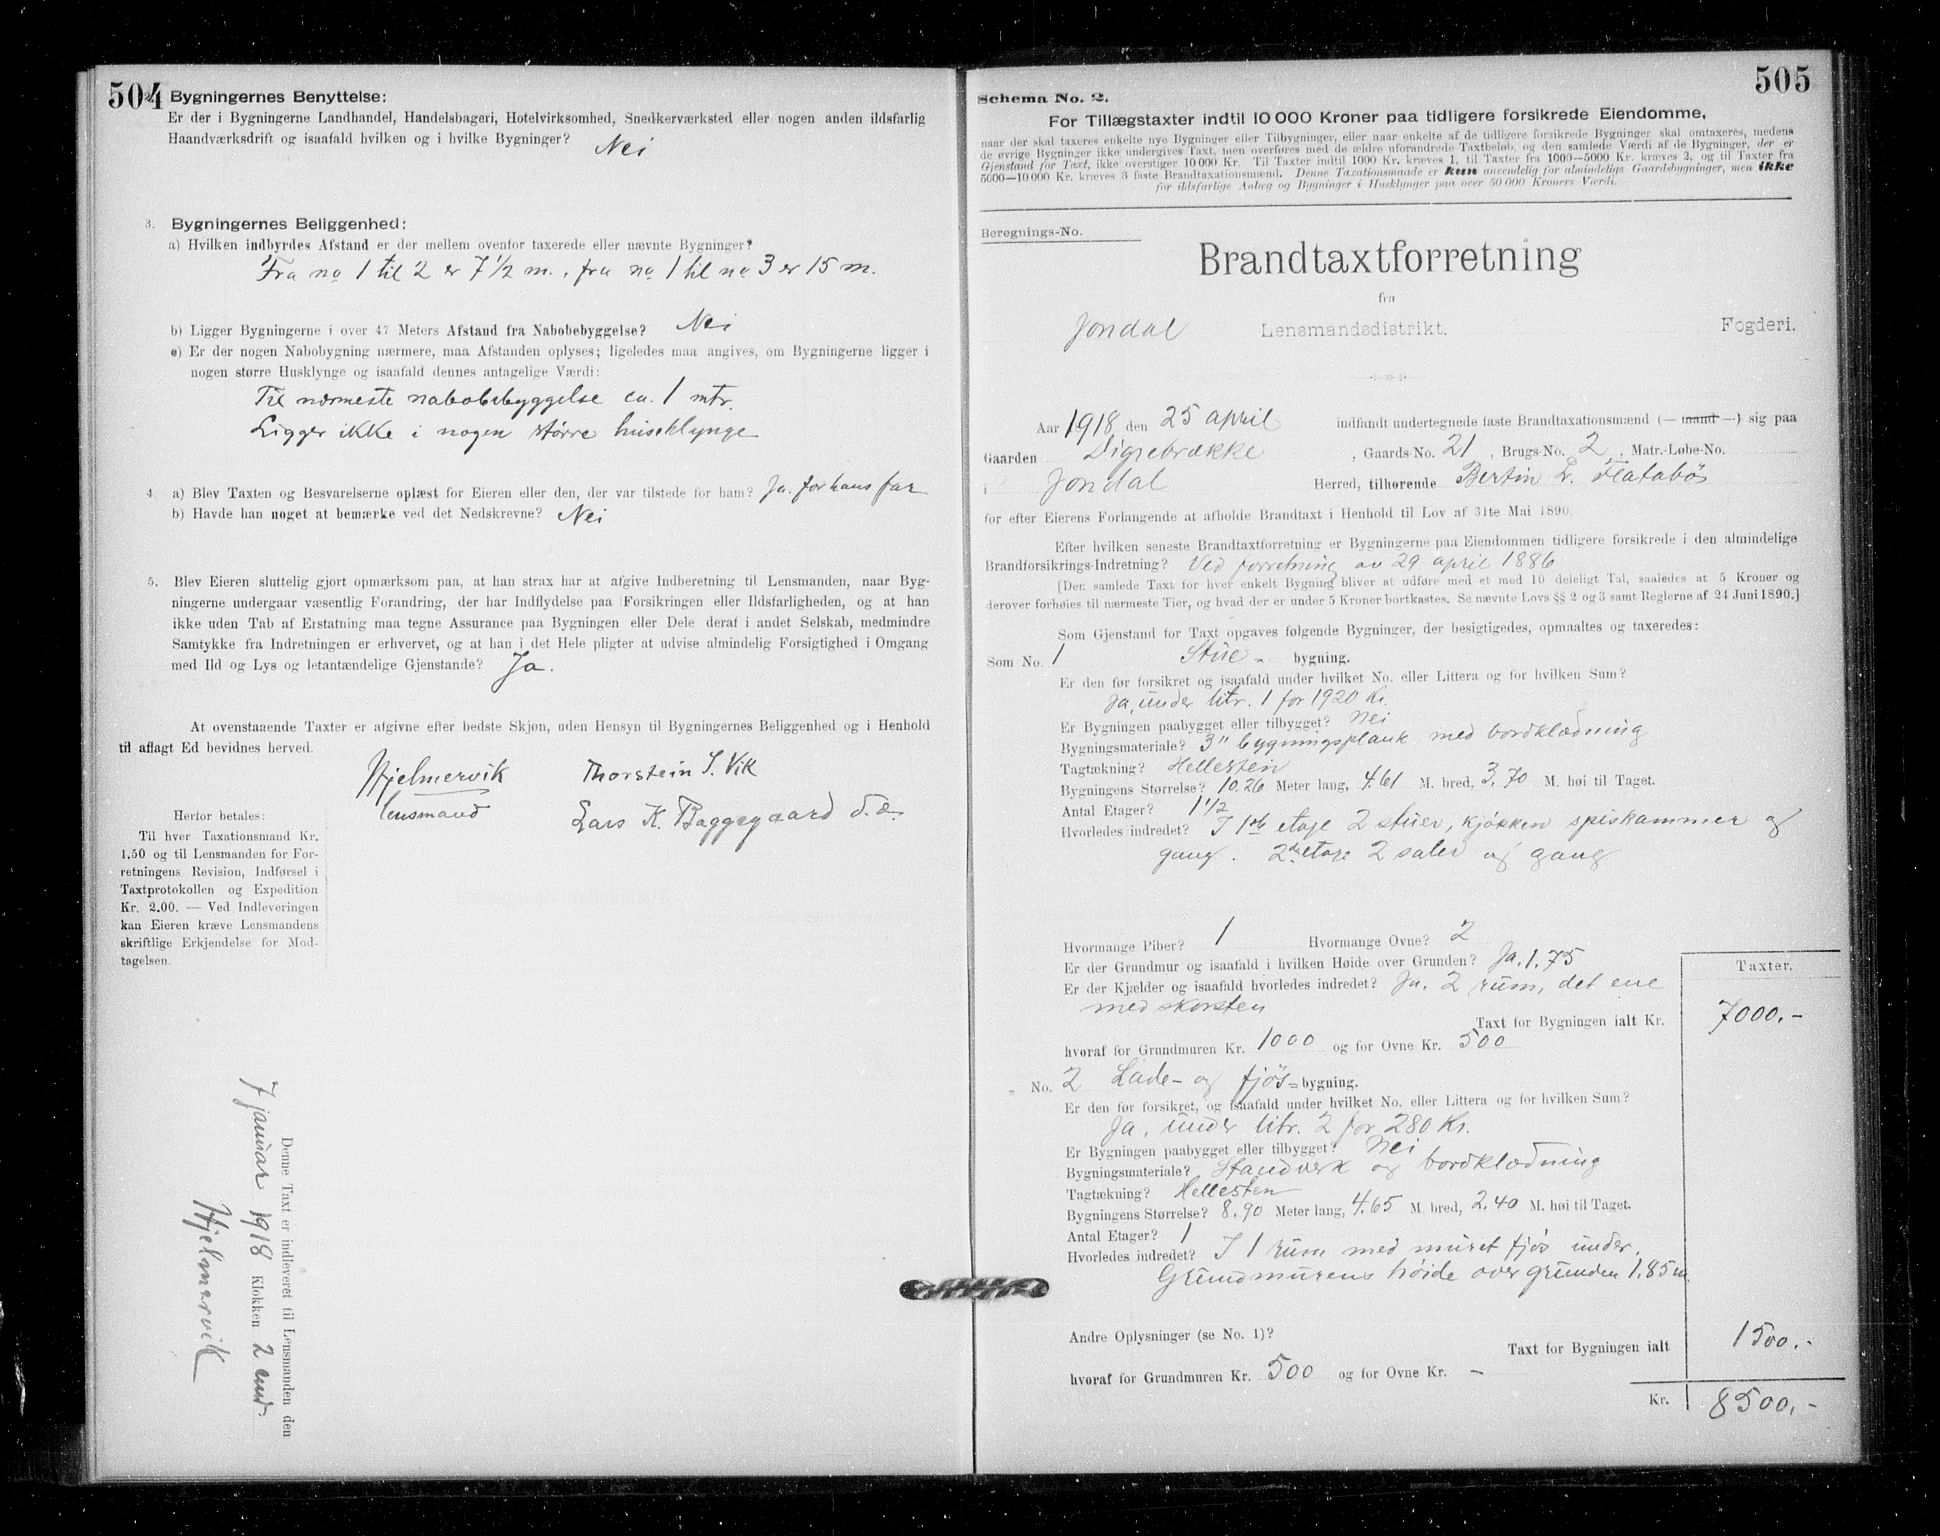 504
2. Bygningernes Benyttelse:
Er der i Bygningerne Landhandel, Handelsbageri, Hotelvirksomhed, Snedkerværksted eller nogen anden ildsfarlig
Haandværksdrift og isaafald hvilken og i hvilke Bygninger? Nei
3. Bygningernes Beliggenhed:
a) Hvilken indbyrdes Afstand er der mellem ovenfor taxerede eller nævnte Bygninger?
Fra no 1 til 2 er 7 1/2 m., fra no 1 til no 3 er 15 m.
b) Ligger Bygningerne i over 47 Meters Afstand fra Nabobebyggelse? Nei
c) Er der nogen Nabobygning nærmere, maa Afstanden oplyses; ligeledes maa angives, om Bygningerne ligger i
nogen større Husklynge og isaafald dennes antagelige Værdi:
Til nærmeste nabobebyggelse ca. 1 mtr.
Ligger ikke i nogen større huseklynge
4. a) Blev Taxten og Besvarelserne oplæst for Eieren eller den, der var tilstede for ham? Ja. for hans far
b) Havde han noget at bemærke ved det Nedskrevne? Nei
5. Blev Eieren sluttelig gjort opmærksom paa, at han strax har at afgive Indberetning til Lensmanden, naar Byg-
ningerne undergaar væsentlig Forandring, der har Indflydelse paa Forsikringen eller Ildsfarligheden, og at han
ikke uden Tab af Erstatning maa tegne Assurance paa Bygningen eller Dele deraf i andet Selskab, medmindre
Samtykke fra Indretningen er erhvervet, og at han i det Hele pligter at udvise almindelig Forsigtighed i Omgang
med Ild og Lys og letantændelige Gjenstande? Ja.
At ovenstaaende Taxter er afgivne efter bedste Skjøn, uden Hensyn til Bygningernes Beliggenhed og i Henhold
til aflagt Ed bevidnes herved.
Hjelmervik Thorstein S. Vik
lensmand Lars K. Baggegaard d.æ.
Herfor betales:
Til hver Taxationsmand Kr.
1.50 og til Lensmanden for For-
retningens Revision, Indførsel i
Taxtprotokollen og Expedition
Kr. 2.00. — Ved Indleveringen
kan Eieren kræve Lensmandens
skriftlige Erkjendelse for Mod-
tagelsen.
Denne Taxt er indleveret til Lensmanden den
7 januar 1918 Klokken 2 emd.
Hjelmervik
505
Schema No. 2.
For Tillægstaxter indtil 10 000 Kroner paa tidligere forsikrede Eiendomme,
naar der skal taxeres enkelte nye Bygninger eller Tilbygninger, eller naar enkelte af de tidligere forsikrede Bygninger skal omtaxeres, medens
de øvrige Bygninger ikke undergives Taxt, men overføres med de ældre uforandrede Taxtbeløb, og den samlede Værdi af de Bygninger, der er
Gjenstand for Taxt, ikke overstiger 10 000 Kr. Til Taxter indtil 1000 Kr. kræves 1, til Taxter fra 1000—5000 Kr. kræves 2, og til Taxter fra
5000—10 000 Kr. kræves 3 faste Brandtaxationsmænd. Denne Taxationsmaade er kun anvendelig for almindelige Gaardsbygninger, men ikke
for ildsfarlige Anlæg og Bygninger i Husklynger paa over 50 000 Kroners Værdi.
Beregnings-No.
Brandtaxtforretning
fra
Jondal Lensmandsdistrikt. Fogderi.
Aar 1918 den 25 april indfandt undertegnede faste Brandtaxationsmænd (— mand —) sig paa
Gaarden Digrebrække, Gaards-No. 21, Brugs-No. 2, Matr.-Løbe-No.
i Jondal Herred, tilhørende Bertin L. Flatabøs
for efter Eierens Forlangende at afholde Brandtaxt i Henhold til Lov af 31te Mai 1890.
Efter hvilken seneste Brandtaxtforretning er Bygningerne paa Eiendommen tidligere forsikrede i den almindelige
Brandforsikrings-Indretning? Ved forretning av 29 april 1886
[Den samlede Taxt for hver enkelt Bygning bliver at udføre med et med 10 deleligt Tal, saaledes at 5 Kroner og
derover forhøies til nærmeste Tier, og hvad der er under 5 Kroner bortkastes. Se nævnte Lovs §§ 2 og 3 samt Reglerne af 24 Juni 1890.]
Som Gjenstand for Taxt opgaves følgende Bygninger, der besigtigedes, opmaaltes og taxeredes:
Som No. 1 Stue- bygning.
Er den før forsikret og isaafald under hvilket No. eller Littera og for hvilken Sum?
Ja, under litr. 1 for 1920 Kr.
Er Bygningen paabygget eller tilbygget? Nei
Bygningsmateriale? 3" bygningsplank med bordklædning
Tagtækning? Hellesten
Bygningens Størrelse? 10.26 Meter lang, 4.61 M. bred, 3.70 M. høi til Taget.
Antal Etager? 1 1/2
Hvorledes indredet? I 1ste etage 2 stuer, kjøkken spiskammer og
gang. 2den etage 2 saler og gang
Hvormange Piber? 1 Hvormange Ovne? 2
Er der Grundmur og isaafald i hvilken Høide over Grunden? Ja. 1.75
Er der Kjælder og isaafald hvorledes indredet? Ja. 2 rum, det ene
med skorsten
Taxter.
Taxt for Bygningen ialt Kr. 7000.-
hvoraf for Grundmuren Kr. 1000 og for Ovne Kr. 500
" No. 2 Lade- og fjøs- bygning.
Er den før forsikret, og isaafald under hvilket No. eller Littera og for hvilken Sum?
Ja, under litr. 2 for 280 Kr.
Er Bygningen paabygget eller tilbygget? Nei
Bygningsmateriale? Standverk og bordklædning
Tagtækning? Hellesten
Bygningens Størrelse? 8.90 Meter lang, 4.65 M. bred, 2.40 M. høi til Taget.
Antal Etager? 1
Hvorledes indredet? I 1 rum med muret fjøs under.
Grundmurens høide over grunden 1.85 m.
Andre Oplysninger (se No. 1)?
Taxt for Bygningen ialt 1500.-
hvoraf for Grundmuren Kr. 500 og for Ovne Kr. -
Kr. 8500.-